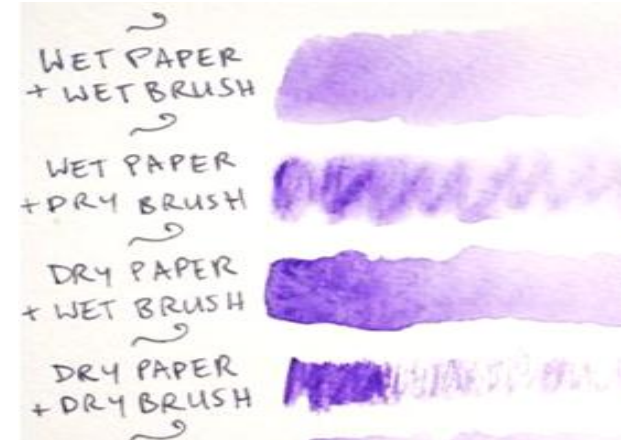 WET PAPER
+ WET BRUSH
WET PAPER
+ DRY BRUSH
DRY PAPER
+ WET BRUSH
DRY PAPER
+ DRY BRUSH